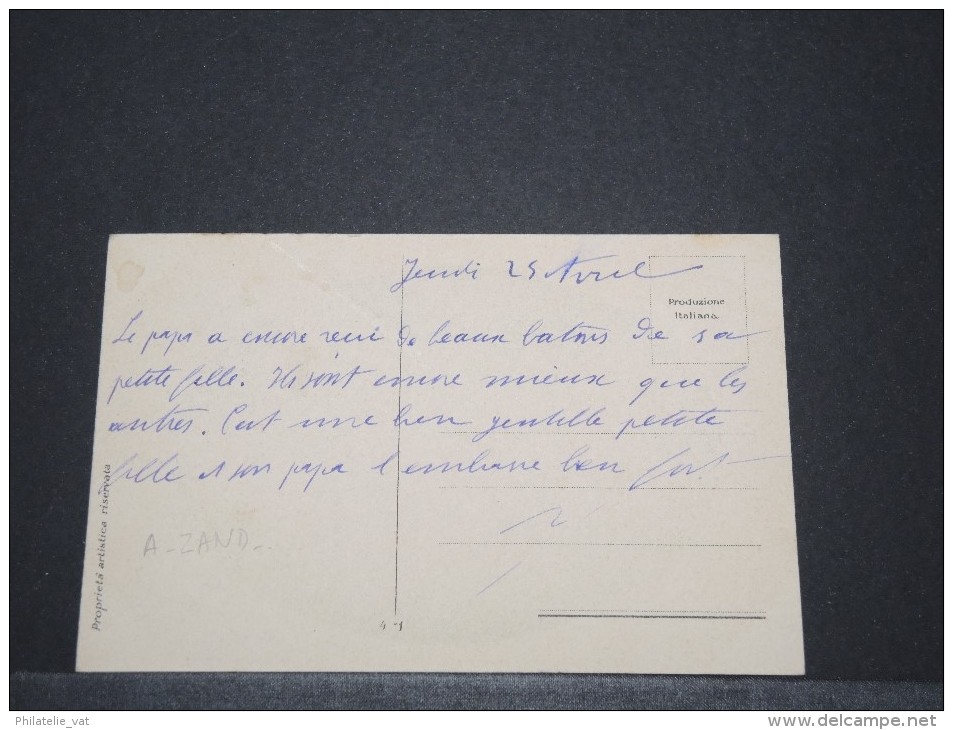 Jeudi 25 Avril
Produzione
Italiana
Le papa a encore reçu de beaux batons de sa
petite fille. Ils sont encore mieux que les
autres. C'est une bien gentille petite
fille et son papa l'embrasse bien fort
Proprietà artistica riservata
A-ZAND
4-1
Philatelie_vat
www.delcampe.net